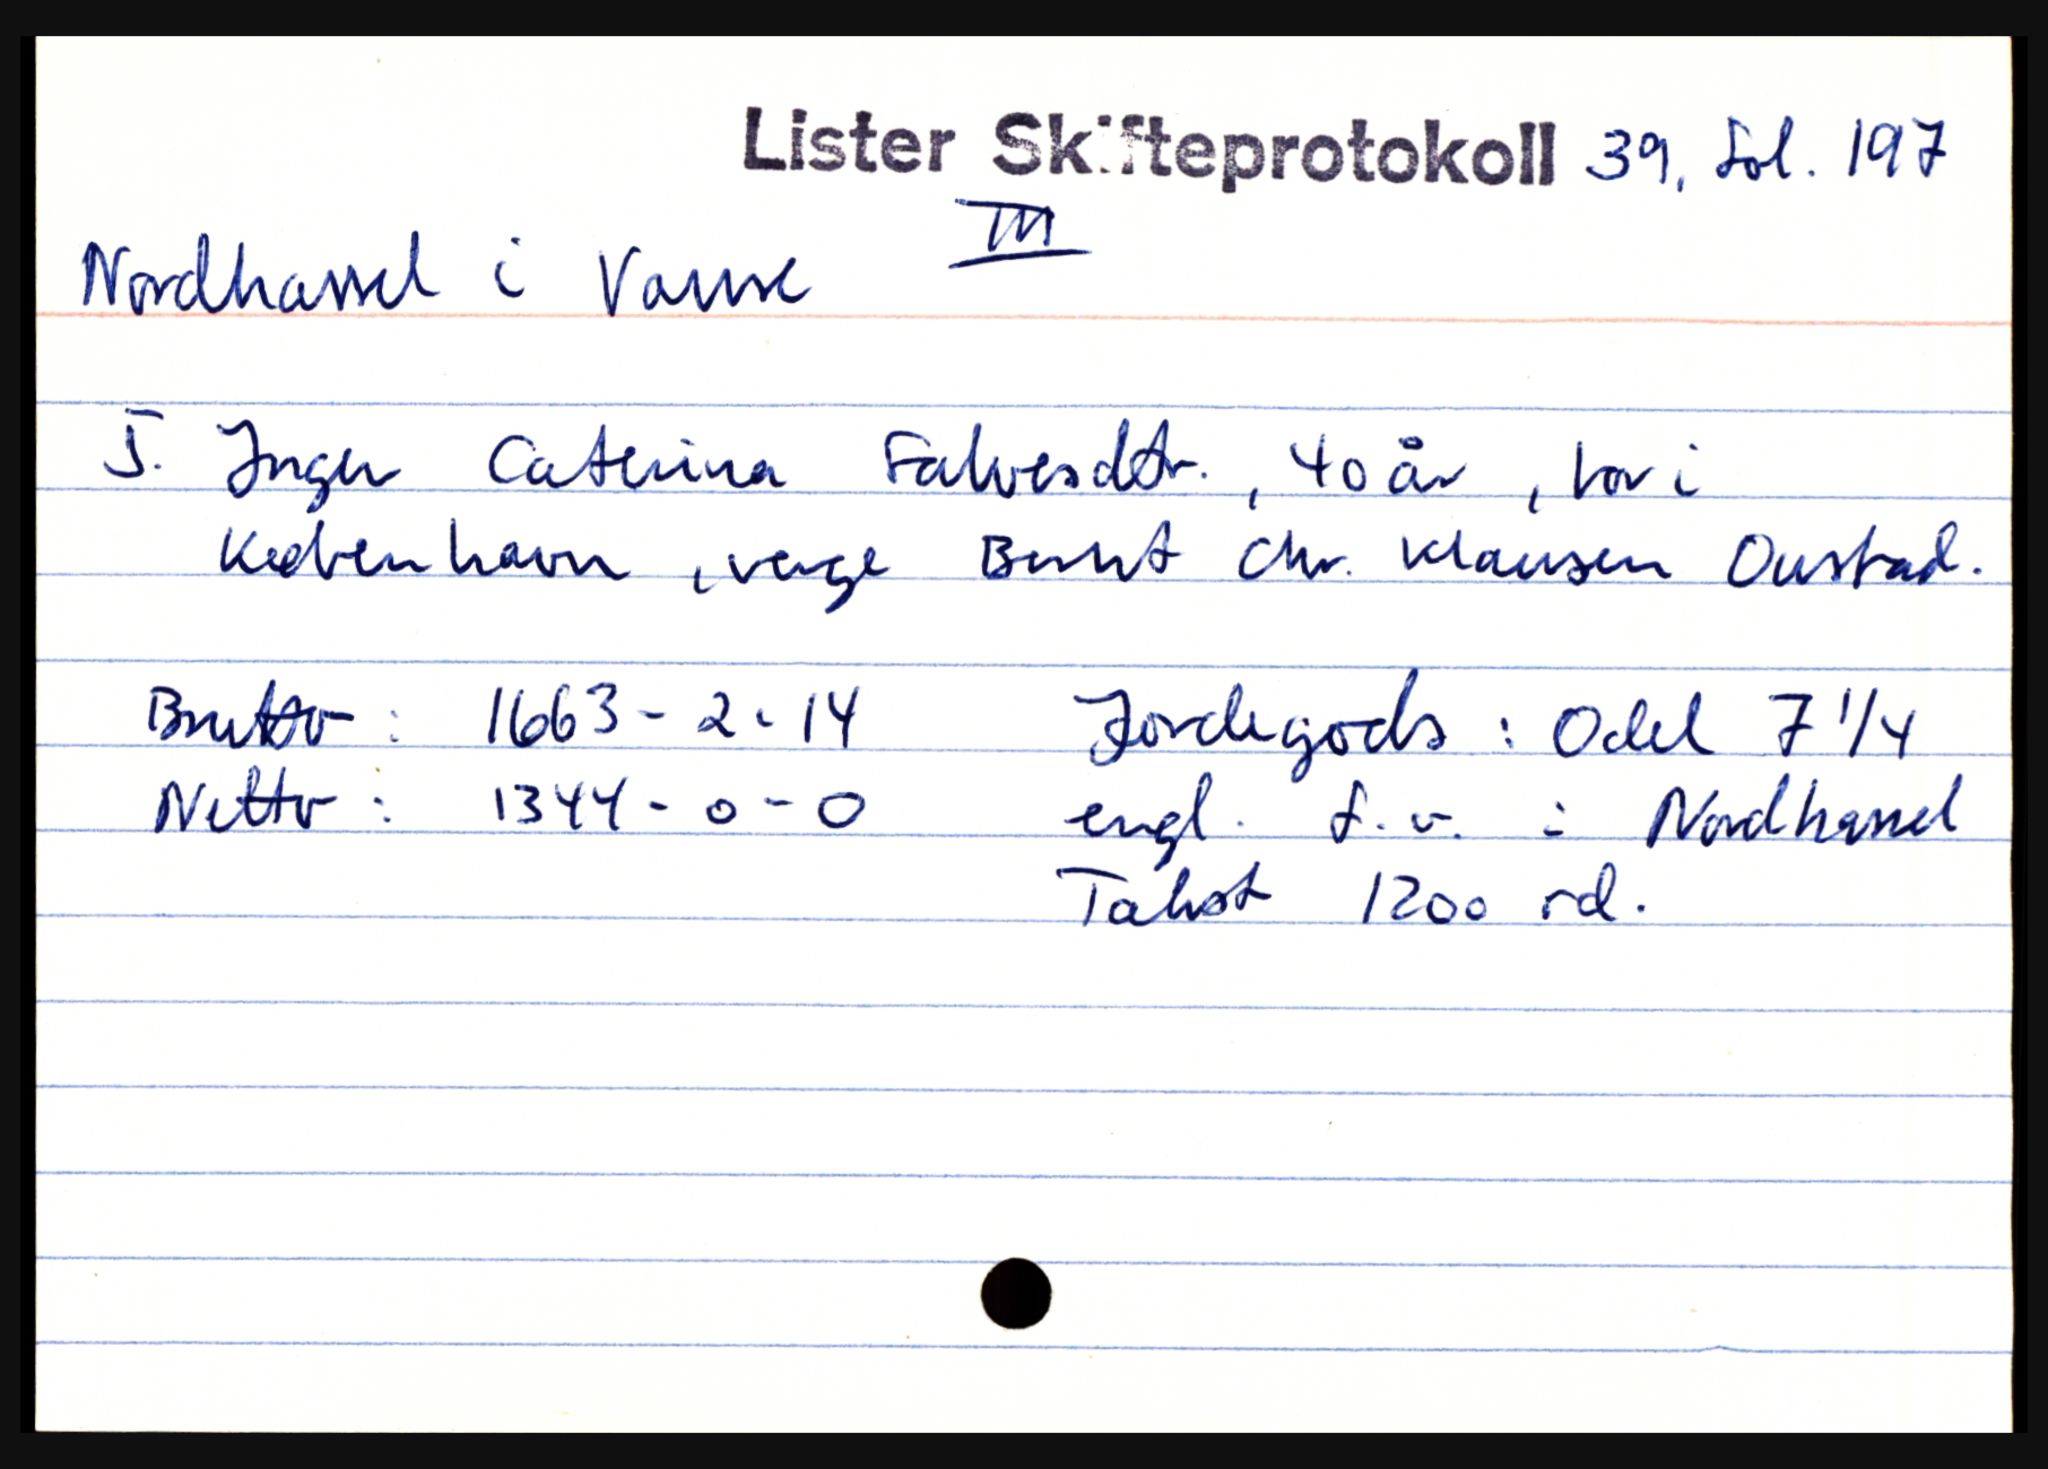 Lister Skifteprotokoll 39, fol. 197
III
Nordhassel i Vanse
5. Inger Caterina Salvesdtr., 40 år, bor i
København, verge Bernt Chr. Klausen Oustad.
Brutto: 1663-2-14 Jordegods: Odel 7 1/4
Netto: 1344-0-0 engl. s.v. i Nordhassel
Takst 1200 rd.